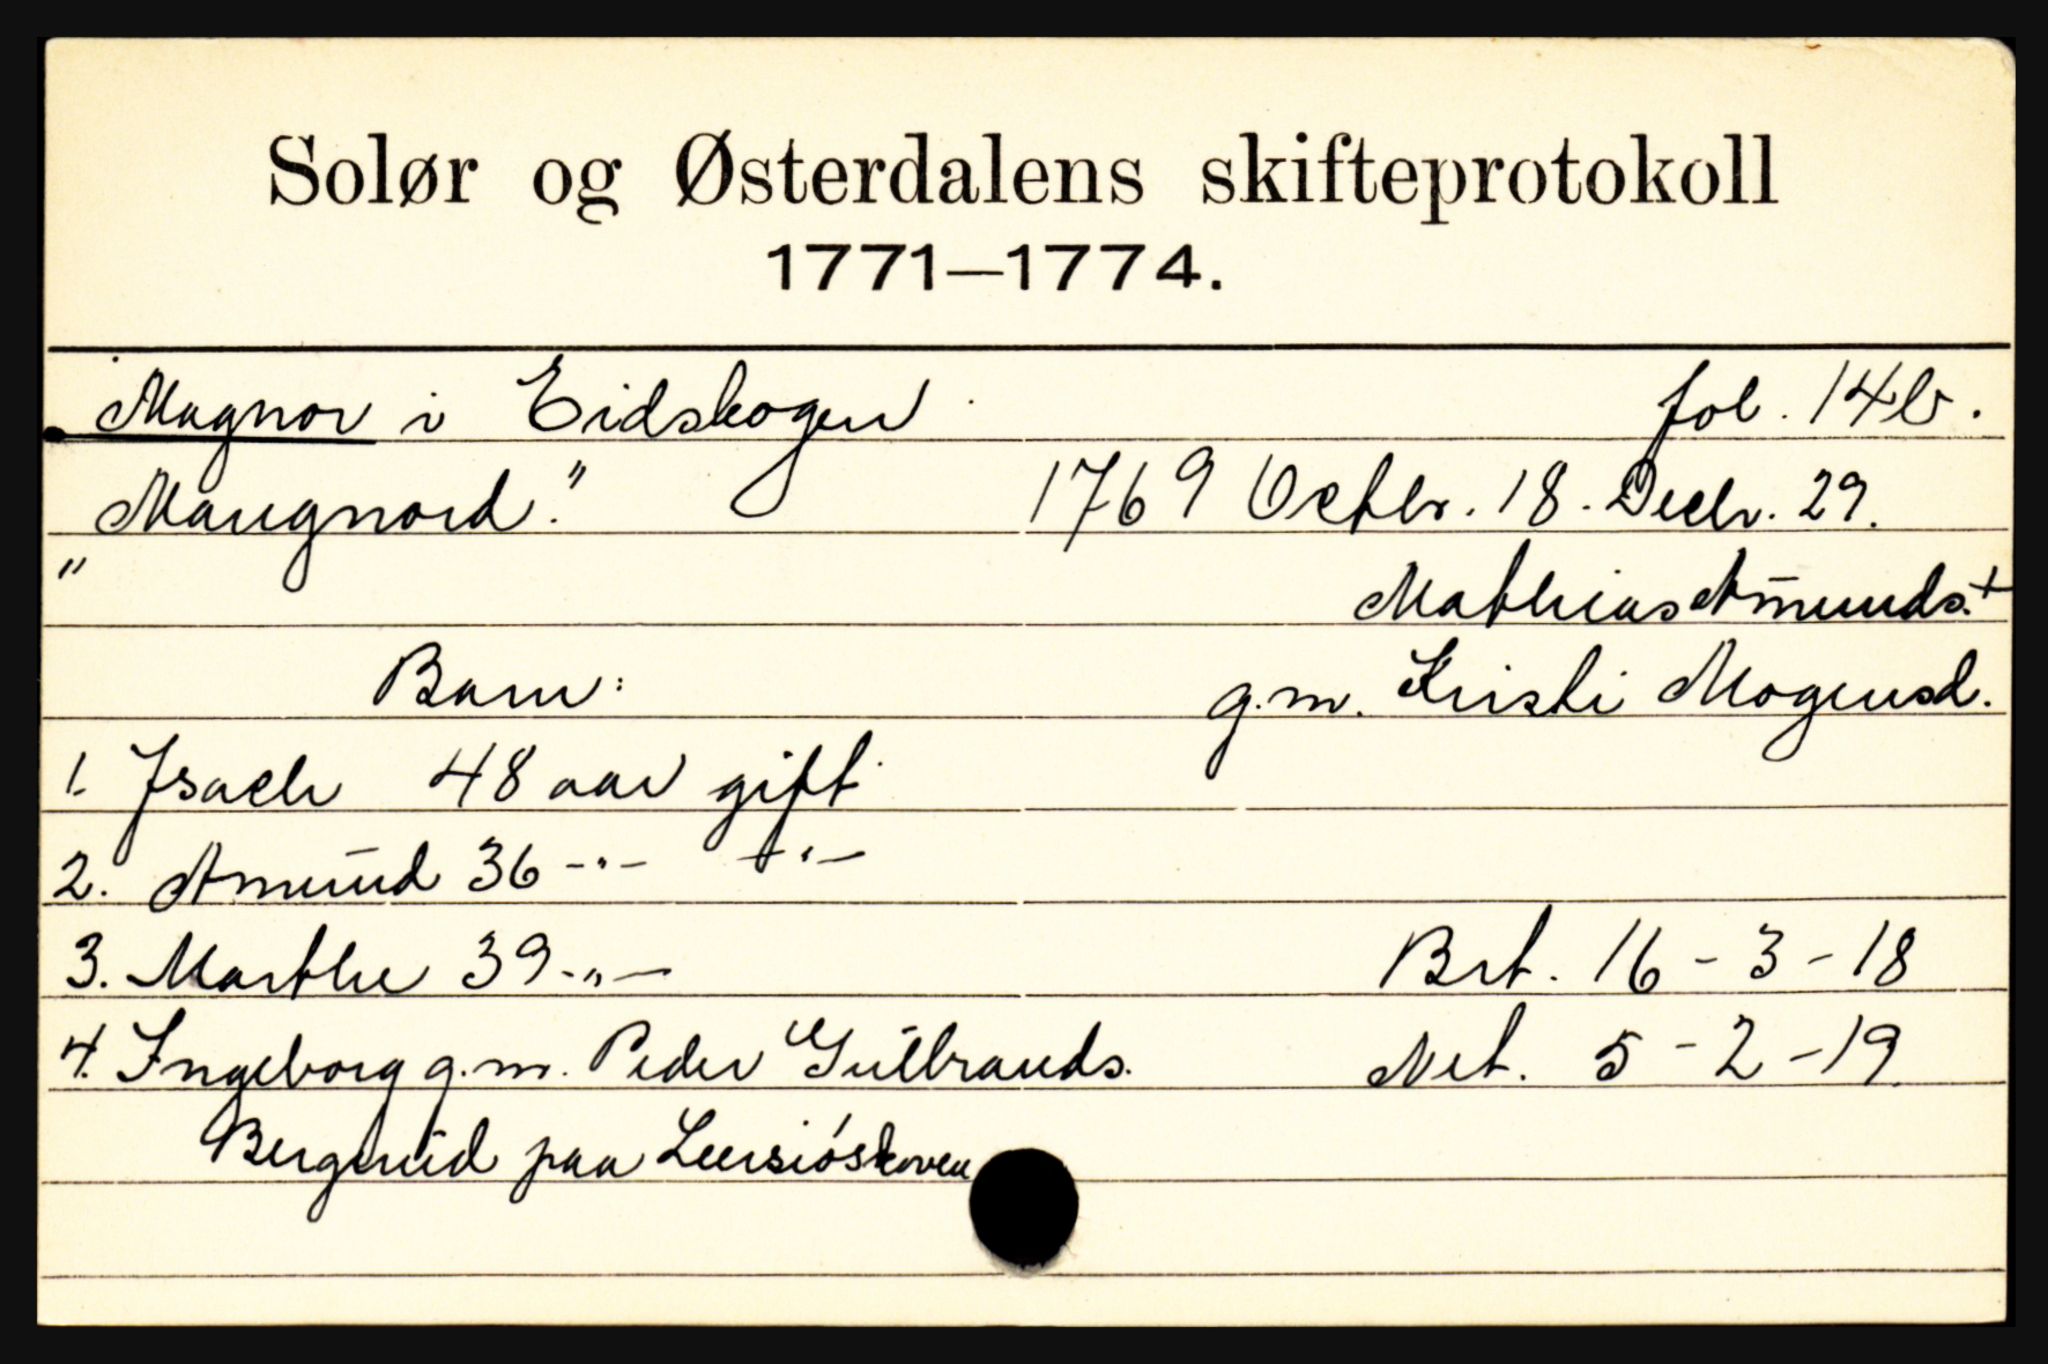 Solør og Østerdalens skifteprotokoll
1771—1774.
Magnor i Eidskogen fol. 14b.
"Maugnord." 1769 Octbr. 18. Decbr. 29.
" Mathias Amunds. +
Barn: g.m. Kristi Mogensd.
1. Isach 48 aar gift
2. Amund 36 -"- -"-
3. Marthe 39 -"-
4. Ingeborg g.m. Peder Gulbrands.
Brt. 16 - 3 - 18
Net. 5 - 2 - 19
Bergerud paa Leersiöskoven